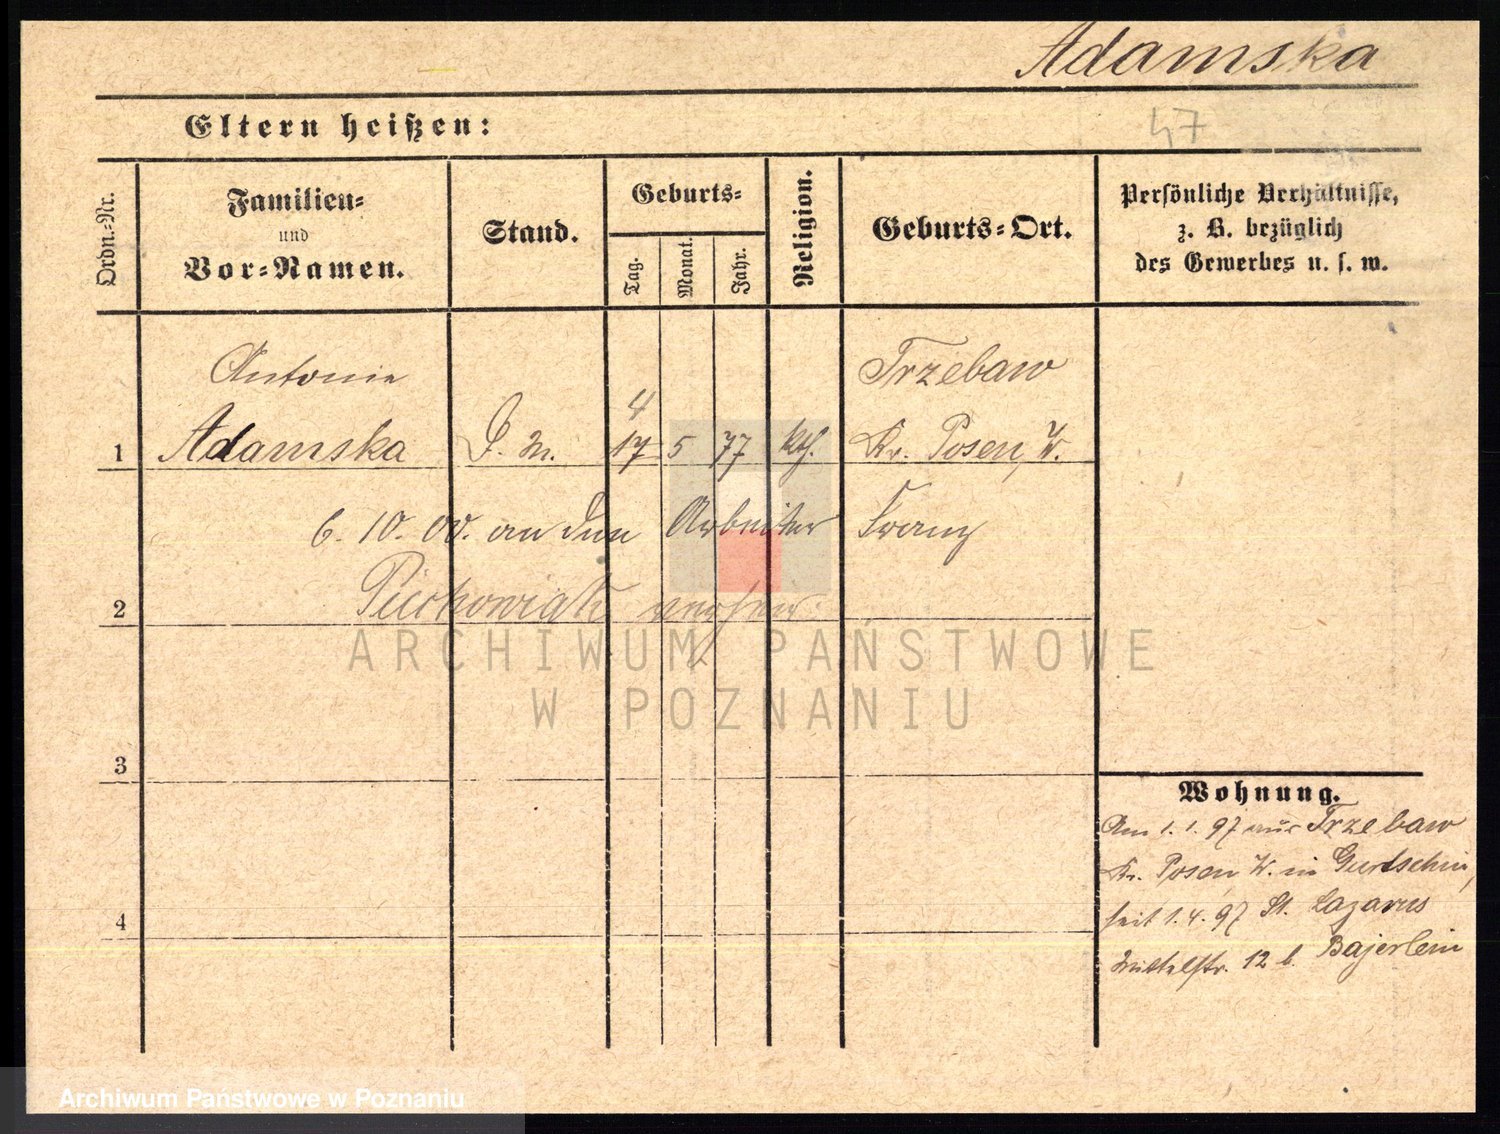 Adamska
Eltern heißen:
47
Ordn.-Nr.
Familien-
und
Vor-Namen.
Stand.
Geburts-
Tag.
Monat.
Jahr.
Religion.
Geburts-Ort.
Persönliche Verhältnisse,
z. B. bezüglich
des Gewerbes u. s. w.
Antonie
Trzebaw
4
1 Adamska D. M. 17 5 77 kth. Kr. Posen, W.
6. 10. 00. an den Arbeiter Franz
2
ARCHIWUM PAŃSTWOWE
W POZNANIU
3
Wohnung.
Am 1. 1. 97 aus Trzebaw
Kr. Posen W. in Gurtschin,
seit 1. 4. 97 St. Lazarus
4
Mittelstr. 12 b. Bajerlein
Archiwum Państwowe w Poznaniu